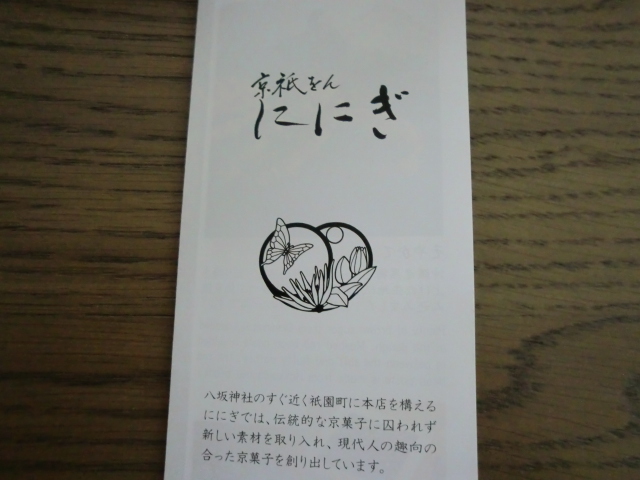 京祇をん
ににぎ
八坂神社のすぐ近く祇園町に本店を構える
ににぎでは、伝統的な京菓子に囚われず
新しい素材を取り入れ、現代人の趣向の
合った京菓子を創り出しています。